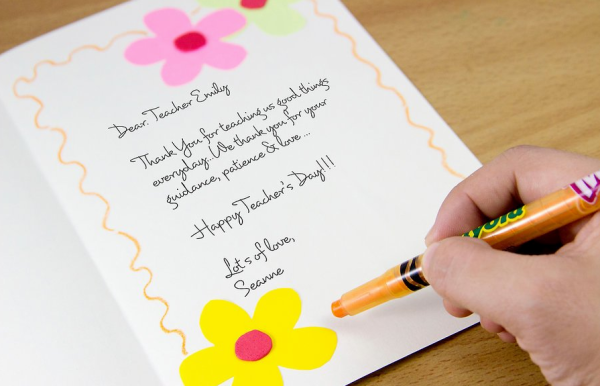 Dear. Teacher Emily
Thank You for teaching us good things
everyday.. We thank you for your
guidance, patience & love ...
Happy Teacher's Day!!!
Lots of love,
Seanne